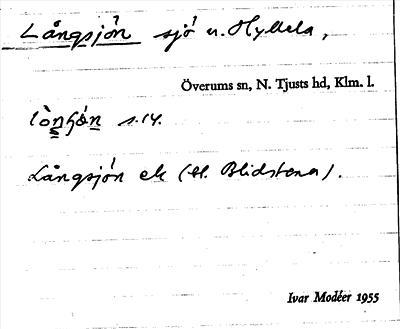 Långsjön sjö u. Hyllela,
Överums sn, N. Tjusts hd, Klm. l.
s.14.
Långsjön ek (H. Blidstena).
Ivar Modéer 1955